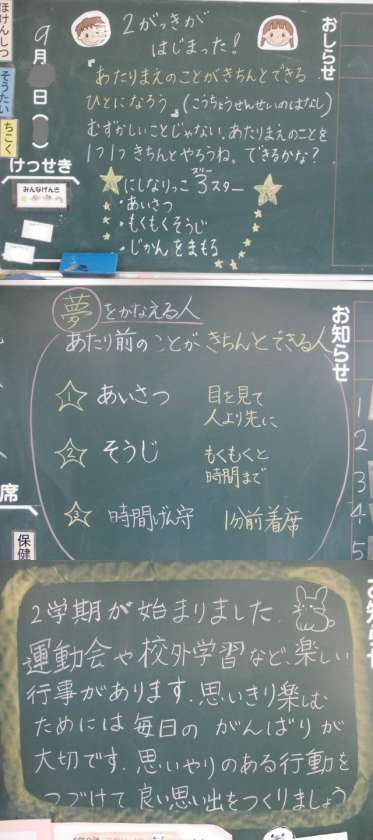 ほけんしつ
そうたい
ちこく
けっせき
みんなげんき
9月 日( )
おしらせ
2がっきが
はじまった!
『あたりまえのことがきちんとできる
ひとになろう』(こうちょうせんせいのはなし)
むずかしいことじゃない。あたりまえのことを
1つ1つきちんとやろうね。できるかな?
にしなりっこ 3スター
スリー
・あいさつ
・もくもくそうじ
・じかんをまもる
お知らせ
夢をかなえる人
あたり前のことがきちんとできる人
1 あいさつ 目を見て
人より先に
2 そうじ もくもくと
時間まで
3 時間げん守 1分前着席
1
2
3
4
5
席
保健
2学期が始まりました.
運動会や校外学習など、楽しい
行事があります.思いきり楽しむ
ためには毎日のがんばりが
大切です.思いやりのある行動を
つづけて良い思い出をつくりましょう